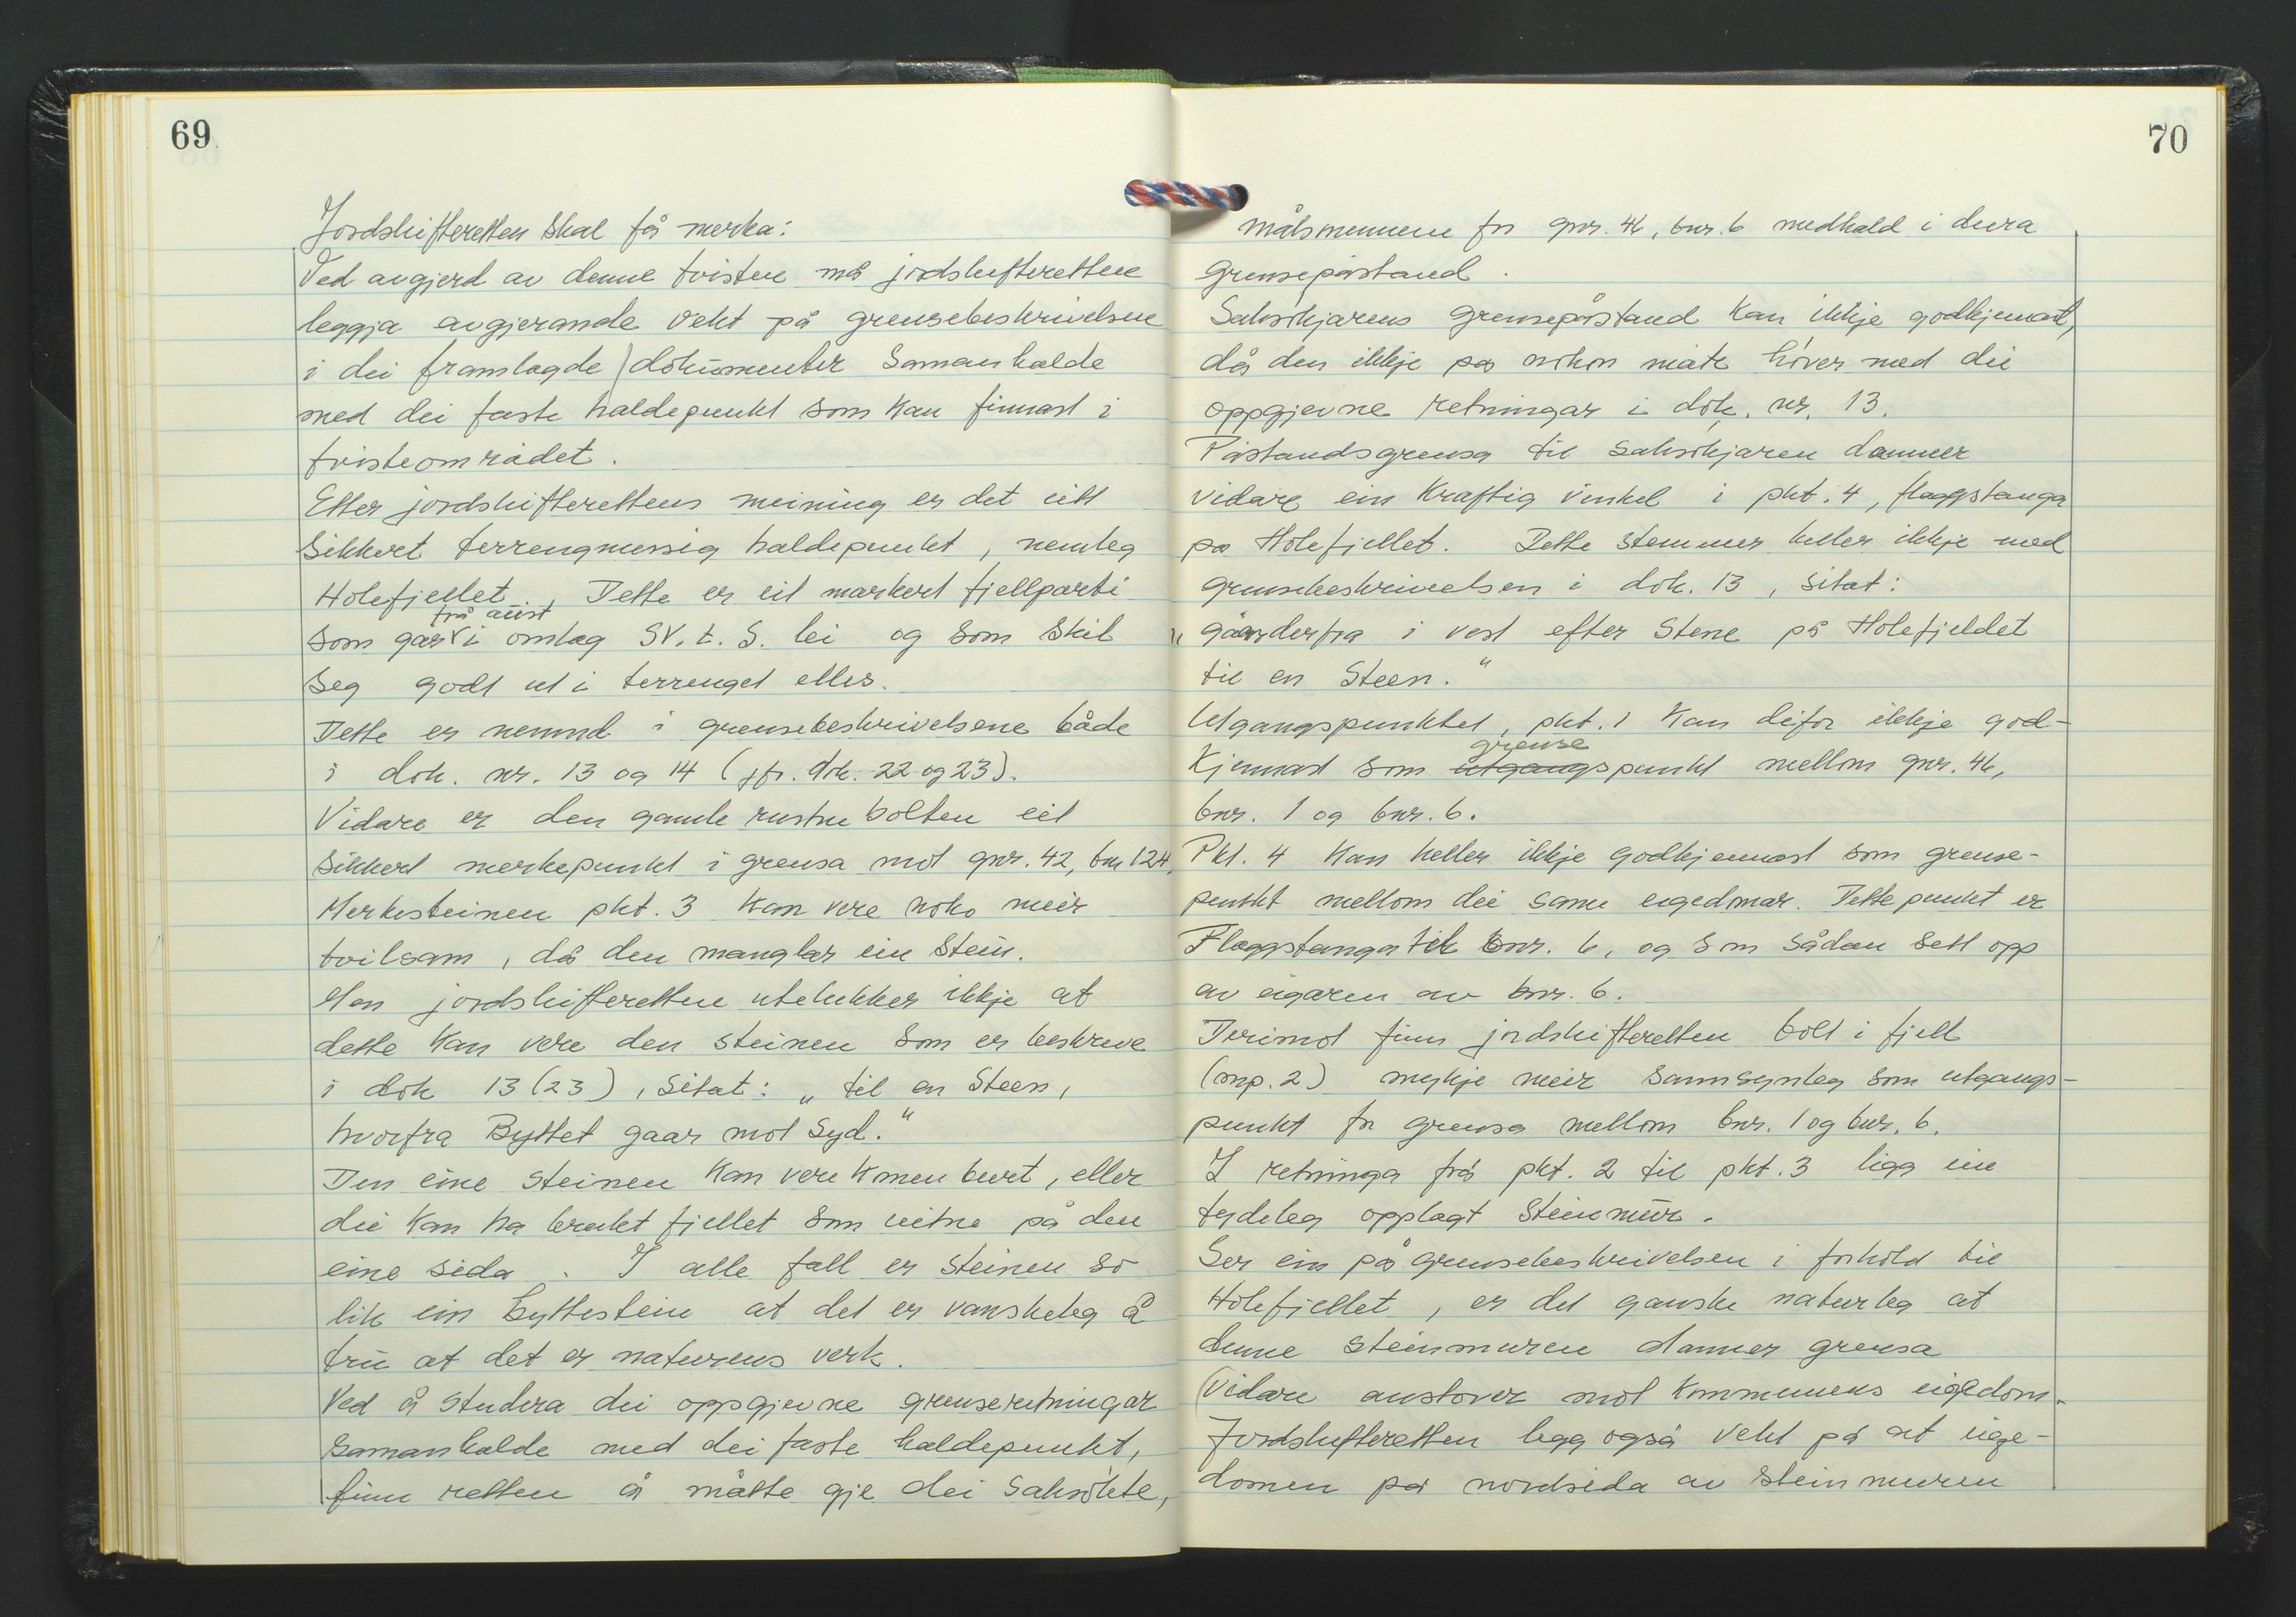 69
Jordskifteretten skal få merka:
Ved avgjerd av denne tvisten må jordskifteretten
leggja avgjerande vekt på grensebeskrivelsene
i dei framlagde dokumenter samanhalde
med dei faste haldepunkt som kan finnast i
tvisteområdet.
Etter jordskifterettens meining er det eitt
sikkert terrengmessig haldepunkt, nemleg
Holefjellet. Dette er eit markert fjellparti
frå aust
som gar i omlag SV. t. S. lei og som skil
seg godt ut i terrenget elles.
Dette er nemnd i grensebeskrivelsene både
i dok. nr. 13 og 14 (jfr. dok. 22 og 23).
Vidare er den gamle rustne bolten eit
sikkert merkepunkt i grensa mot gnr. 42, bnr 124,
Merkesteinen pkt. 3 kan vere noko meir
tvilsam, då den manglar ein stein.
Men jordskifteretten utelukker ikkje at
dette kan vere den steinen som er beskreve
i dok 13 (23), sitat: „til en Steen,
hvorfra Byttet gaar mot Syd."
Den eine steinen kan vere komen burt, eller
dei kan ha brukt fjellet som vitne på den
eine sida. I alle fall er steinen so
lik ein byttestein at det er vanskeleg å
tru at det er naturens verk.
Ved å studera dei oppgjevne grenseretningar
samanhalde med dei faste haldepunkt,
finn retten å måtte gje dei saksøkte,
70
målsmennene for gnr. 46, bnr. 6 medhald i deira
grensepåstand.
Saksøkjarens grensepåstand kan ikkje godkjennast,
då den ikkje på nokon måte høver med dei
oppgjevne retningar i dok. nr. 13.
Påstandsgrensa til saksøkjaren danner
vidare ein kraftig vinkel i pkt. 4, flaggstanga
på Holefjellet. Dette stemmer heller ikkje med
grensebeskrivelsen i dok. 13, sitat:
„gaar derfra i vest efter Stene på Holefjeldet
til en Steen."
Utgangspunktet, pkt. 1 kan difor ikkje god-
grense
kjennast som utgangspunkt mellom gnr. 46,
bnr. 1 og bnr. 6.
Pkt. 4 kan heller ikkje godkjennast som grense-
punkt mellom dei same eigedomar. Dette punkt er
Flaggstanga til bnr. 6, og som sådan sett opp
av eigaren av bnr. 6.
Derimot finn jordskifteretten bolt i fjell
(mp. 2) mykje meir sannsynleg som utgangs-
punkt for grensa mellom bnr. 1 og bnr. 6.
I retninga frå pkt. 2 til pkt. 3 ligg ein
tydeleg opplagt steinmur.
Ser ein på grensebeskrivelsen i forhold til
Holefjellet, er det ganske naturleg at
denne steinmuren danner grensa
vidare austover mot kommunens eigedom.
Jordskifteretten legg også vekt på at eige-
domen på nordsida av steinmuren